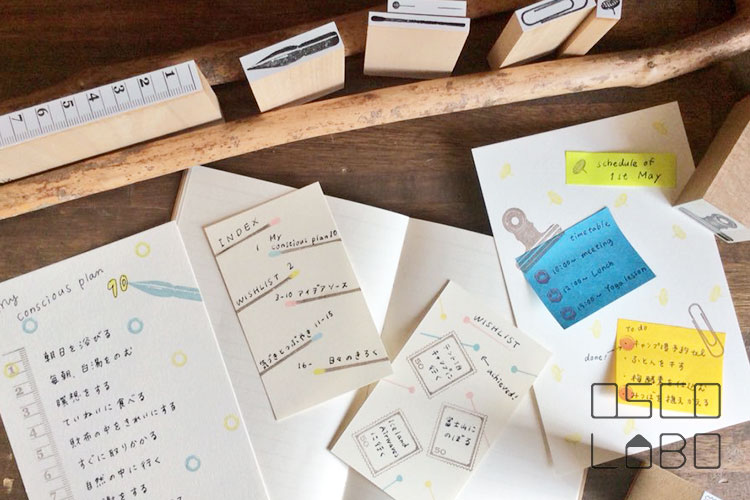 1 2 3 4 5 6 7
my
conscious plan
10
1
2
3
4
5
6
7
朝日を浴びる
毎朝、白湯をのむ
瞑想をする
ていねいに食べる
財布の中をきれいにする
すぐに取りかかる
自然の中に行く
INDEX
1 My
conscious plan10
WISHLIST 2
3-10 アイデアソース
気づきとつぶやき 11-15
16~ 日々のきろく
WISHLIST
キャンプに行く
50
achieved!
Iceland
Airwaves
に行く
50
富士山に
のぼる
50
schedule of
1st May
timetable
10:00~ meeting
12:00~ Lunch
15:00~ Yoga lesson
To do
done!
ふとんを干す
OSCO
LABO